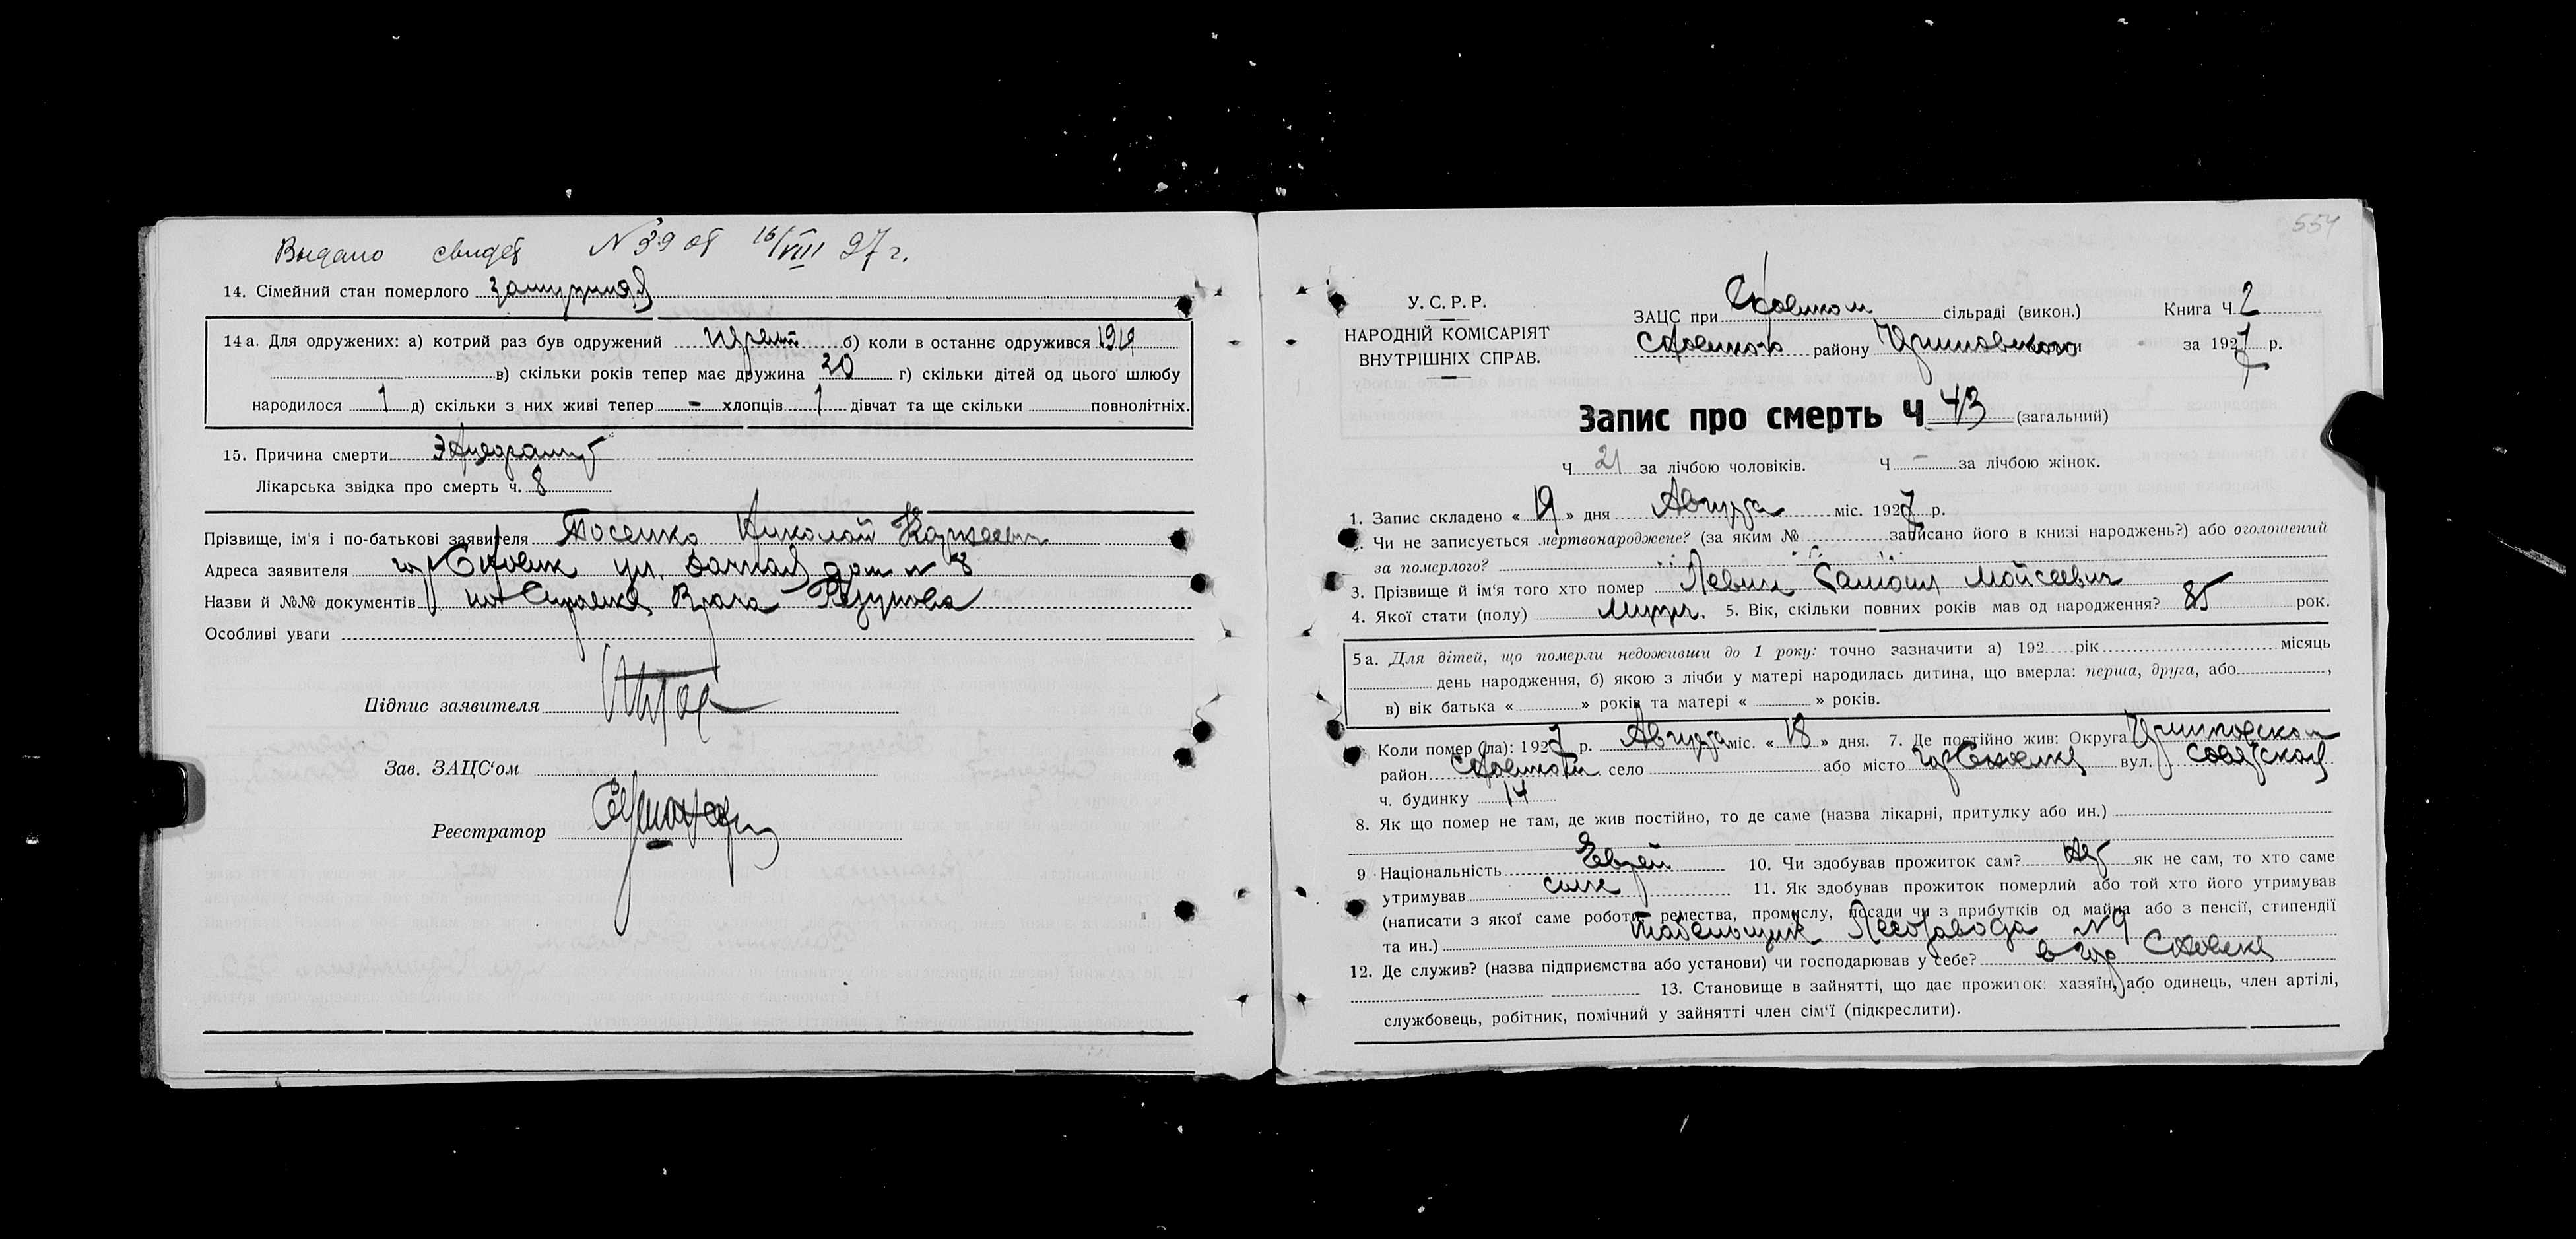 Выдано свидет N 39 от 16/VIII 27 г.
14. Сімейний стан померлого замужняя
14 а. Для одружених: а) котрий раз був одружений первый б) коли в останнє одружився
в) скільки років тепер має дружина 20 г) скільки дітей од цього шлюбу
народилося 1 д) скільки з них живі тепер - хлопців 1 дівчат та ще скільки повнолітніх.
15. Причина смерти
Лікарська звідка про смерть ч. 8
Прізвище, ім'я і по-батькові заявителя Николай
Адреса заявителя гор Сновск ул. дом № 8
Назви й №№ документів Справка Врача
Особливі уваги
Підпис заявителя
Зав. ЗАЦС'ом
Реєстратор
554
У. С. Р. Р.
НАРОДНІЙ КОМІСАРІЯТ
ВНУТРІШНІХ СПРАВ.
ЗАЦС при сільраді (викон.) Книга Ч. 2
Сновского району за 1927 р.
Запис про смерть Ч 43 (загальний)
Ч 21 за лічбою чоловіків. Ч - за лічбою жінок.
1. Запис складено « 19 » дня Августа міс. 1927 р.
2. Чи не записується мертвонароджене? (за яким № записано його в книзі народжень?) або оголошений
за померлого?
3. Прізвище й ім'я того хто помер Левин Самоил Мойсеевич
4. Якої стати (полу) мужч. 5. Вік, скільки повних років мав од народження? 85 рок.
5 а. Для дітей, що померли недоживши до 1 року: точно зазначити а) 192 рік місяць
день народження, б) якою з лічби у матері народилась дитина, що вмерла: перша, друга, або ,
в) вік батька « » років та матері « » років.
Коли помер (ла): 1927 р. Августа міс. « 18 » дня. 7. Де постійно жив: Округа
район Сновский село або місто гор Сновск вул. Советская
ч. будинку 14
8. Як що помер не там, де жив постійно, то де саме (назва лікарні, притулку або ин.)
9 Національність Еврей 10. Чи здобував прожиток сам? нет як не сам, то хто саме
утримував сын 11. Як здобував прожиток померлий або той хто його утримував
(написати з якої саме роботи, ремества, промислу, посади чи з прибутків од майна або з пенсії, стипендії
та ин.) табельщик Лесозавода N 9
12. Де служив? (назва підприємства або установи) чи господарював у себе? в гор Сновске
13. Становище в зайнятті, що дає прожиток: хазяїн, або одинець, член артілі,
службовець, робітник, помічний у зайнятті член сім'ї (підкреслити).